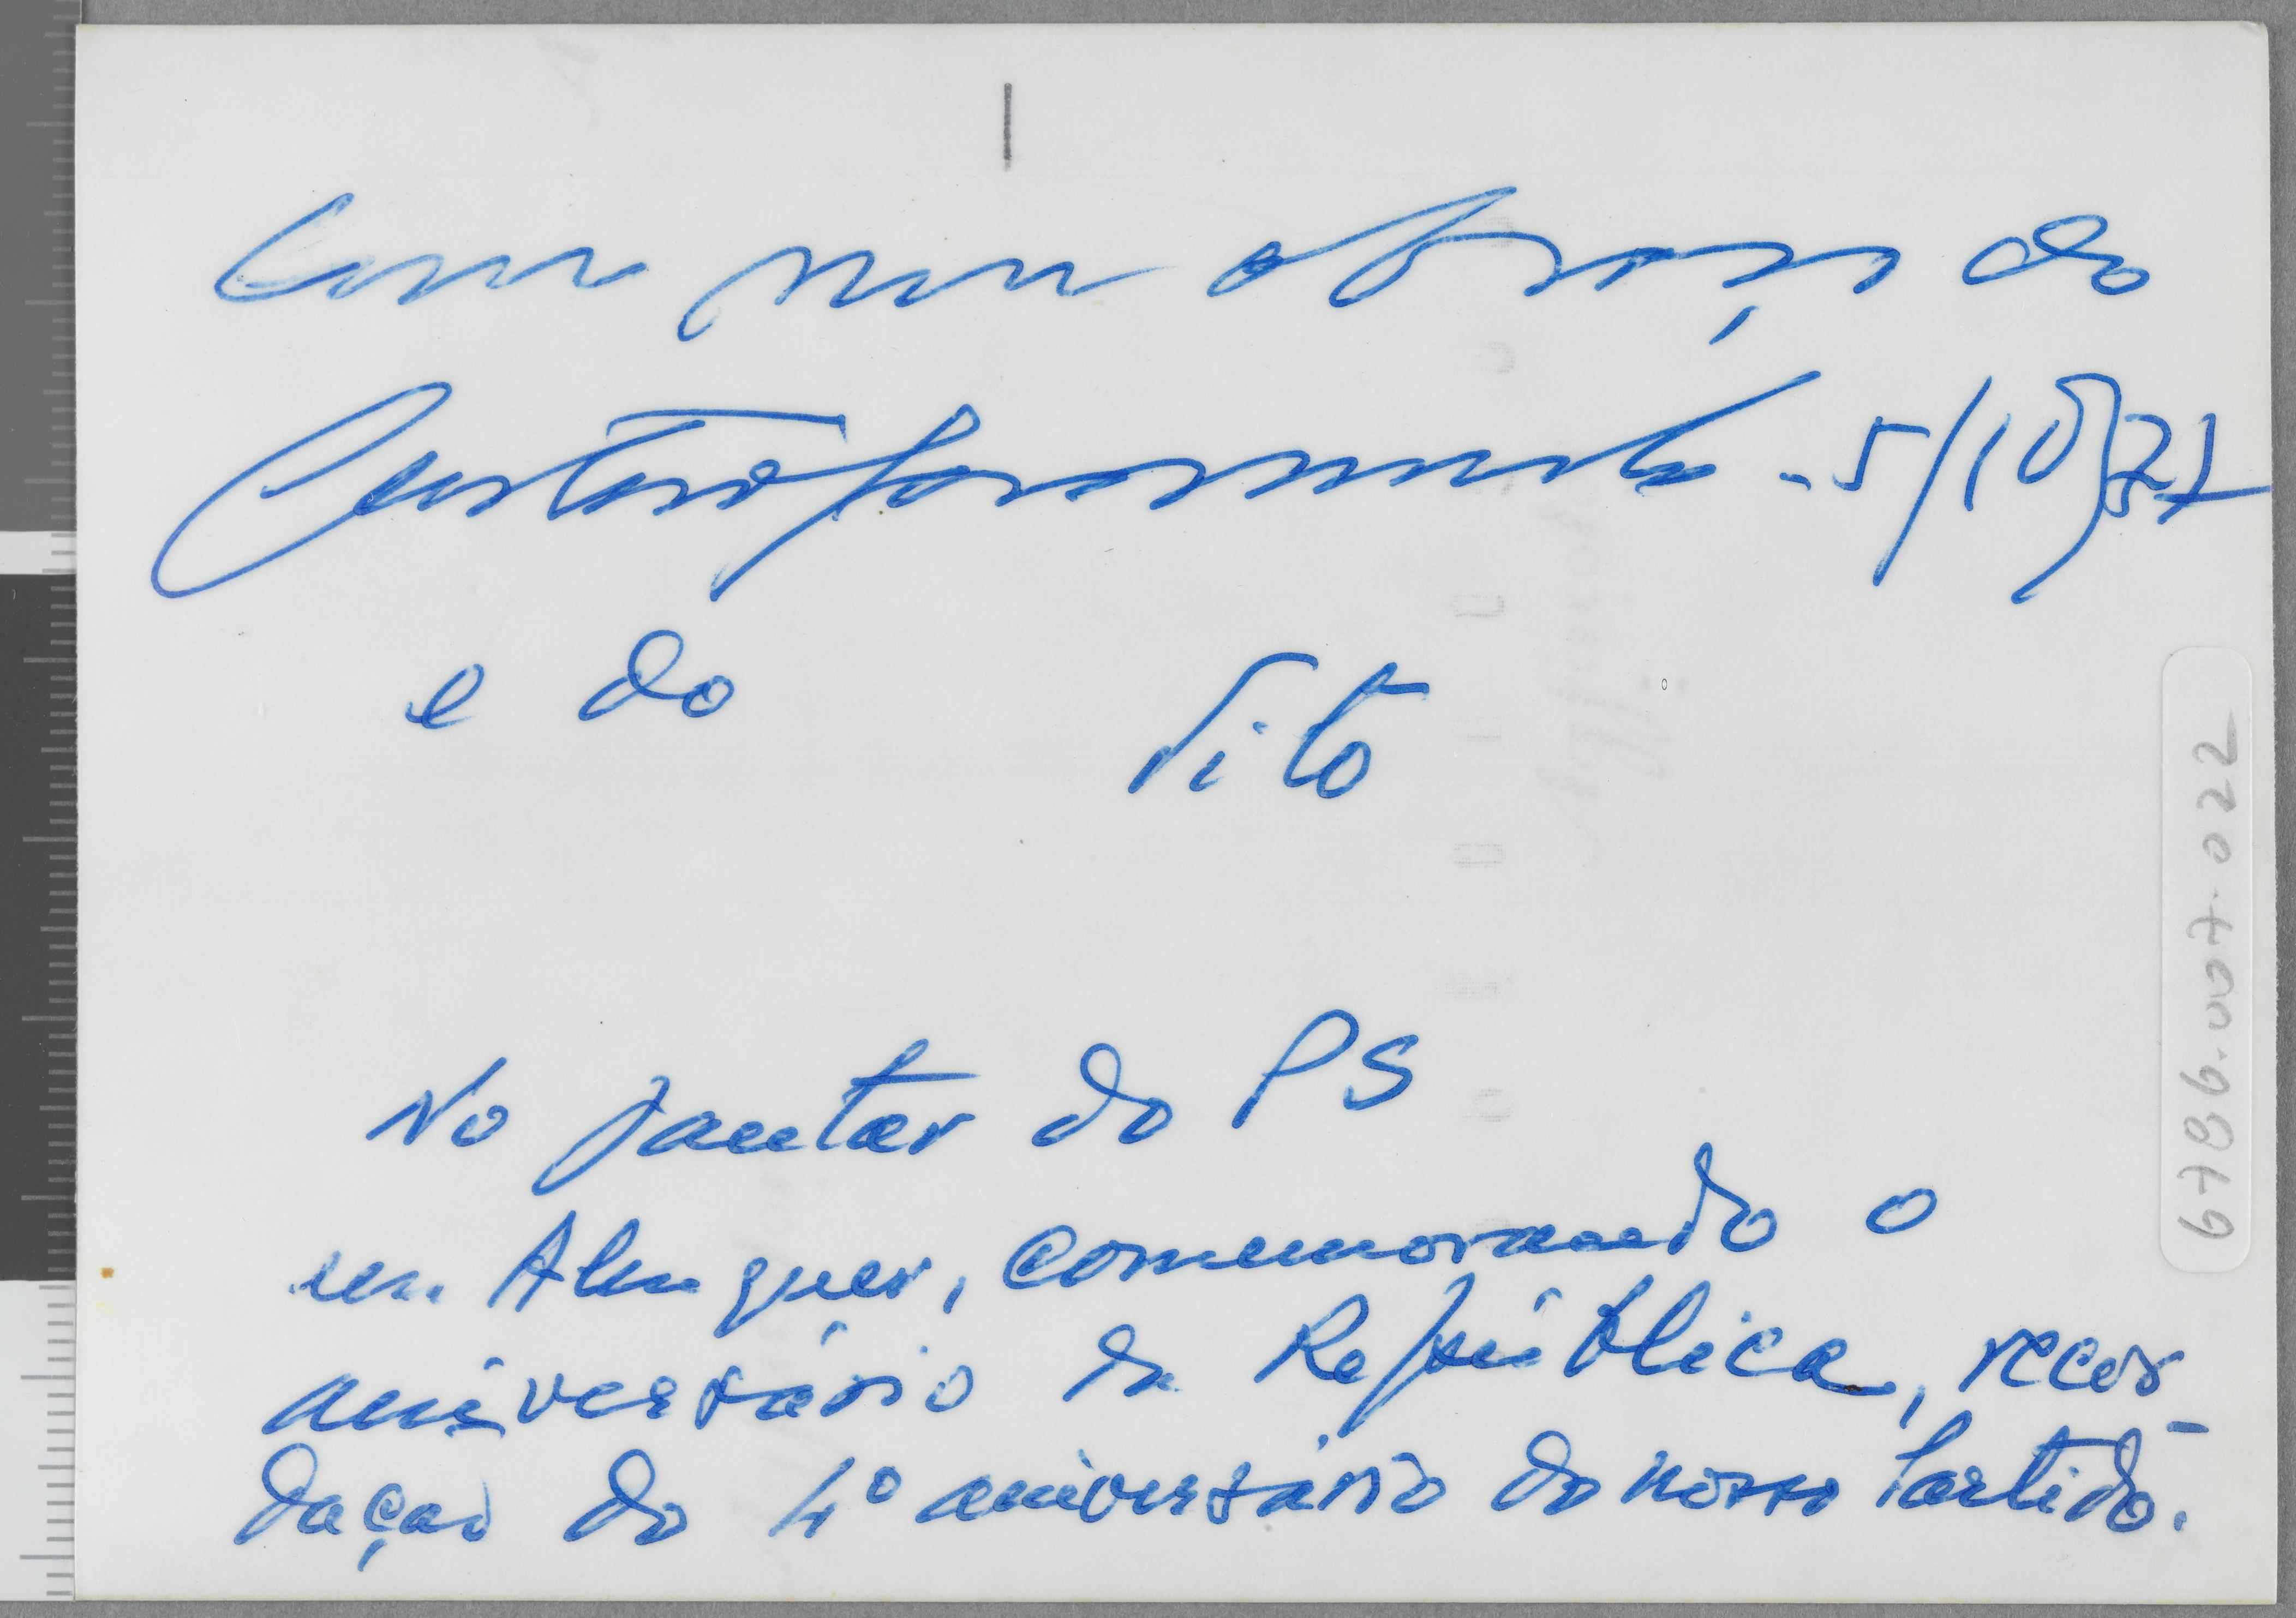 Com um abraço do
Gustavo Soromenho - 5/10/77
e do
Vito
No jantar do PS
em Alenquer, comemorando o
aniversário da República, recor-
dação do 4º aniversário do nosso Partido.
6786.007.022